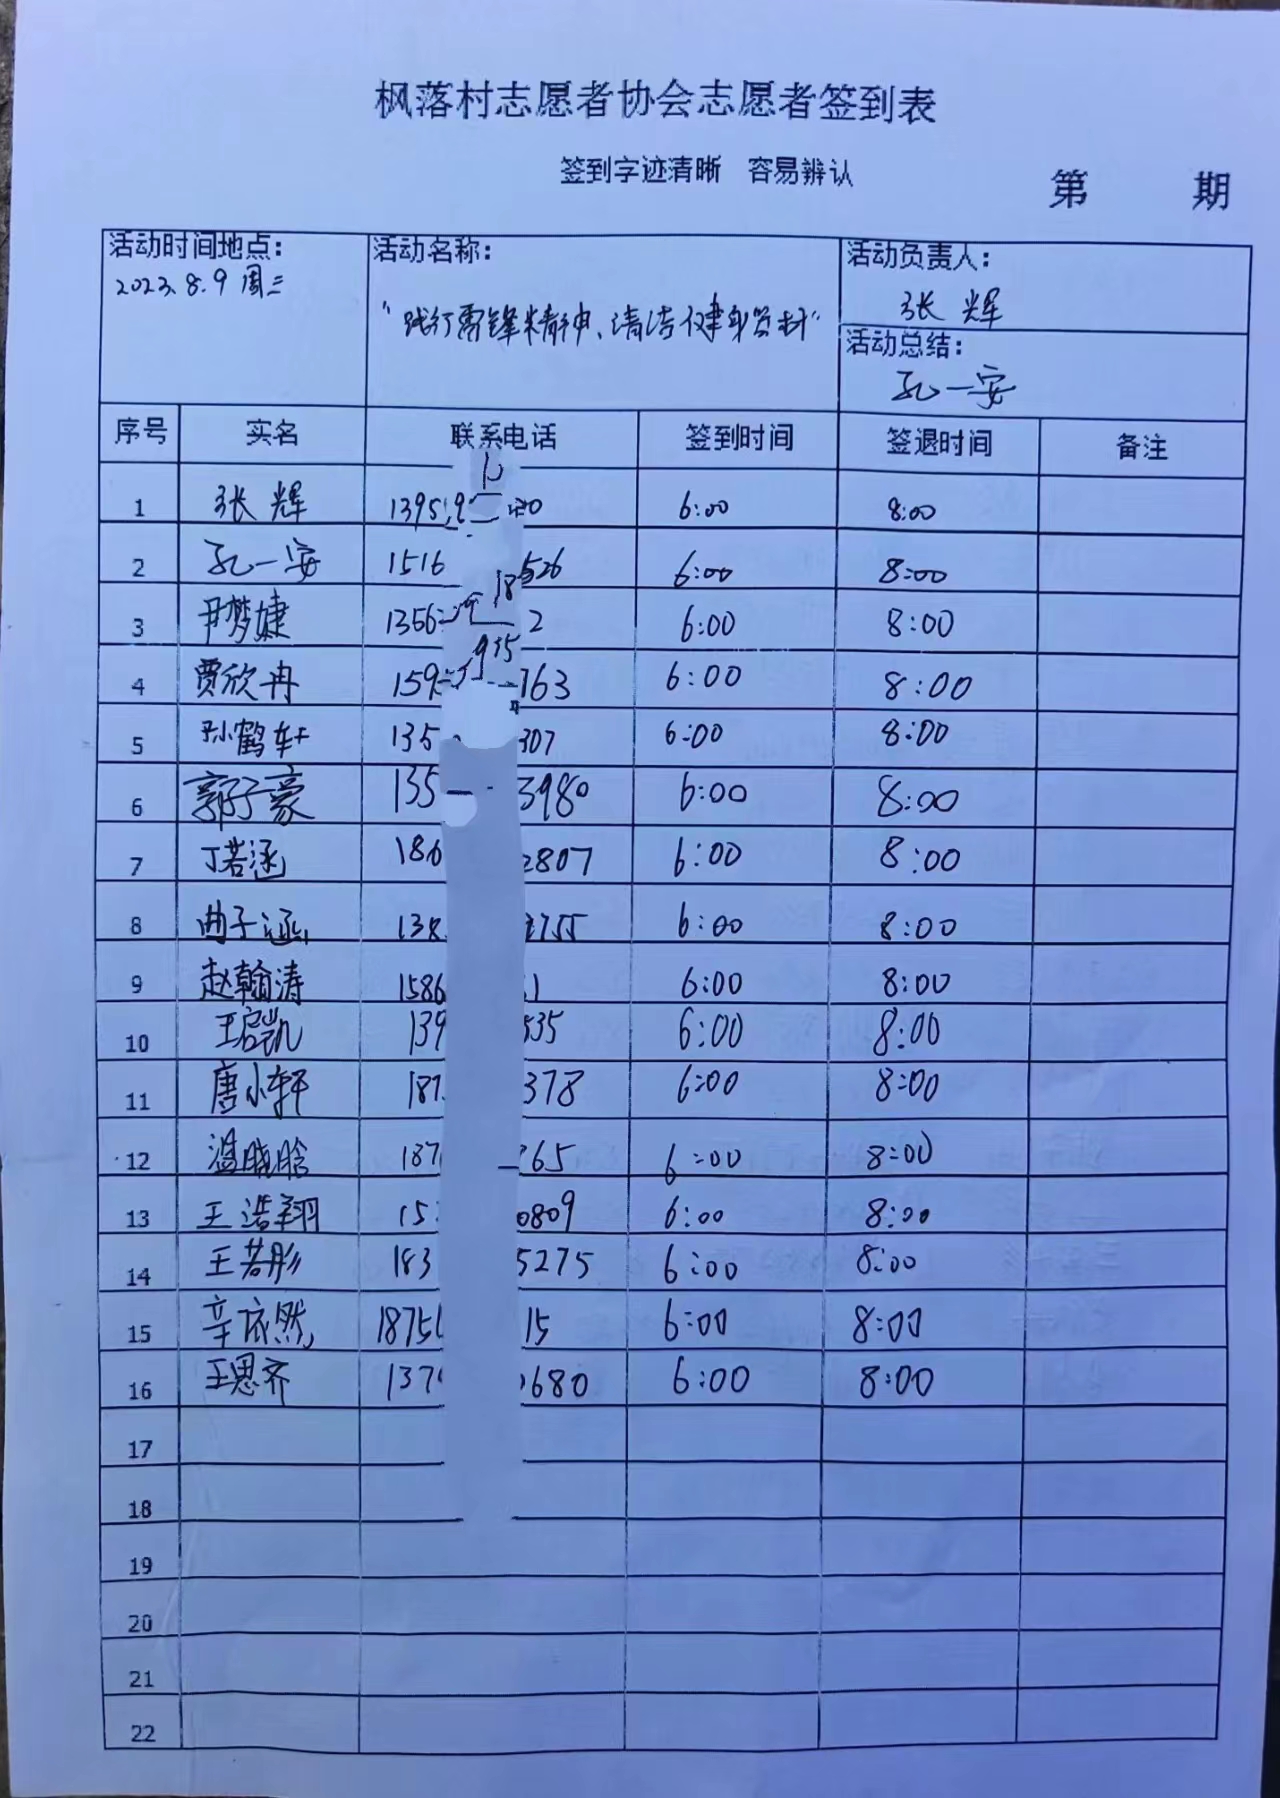 枫落村志愿者协会志愿者签到表
签到字迹清晰 容易辨认
第 期
活动时间地点： 活动名称： 活动负责人：
2023.8.9 周三 "践行雷锋精神、清洁健身器材" 张辉
活动总结：
孔一安
序号 实名 联系电话 签到时间 签退时间 备注
1 张辉 1395 6:00 8:00
2 孔一安 1516 526 6:00 8:00
3 尹梦婕 1356 2 6:00 8:00
4 贾欣冉 159 763 6:00 8:00
5 孙鹤轩 135 307 6:00 8:00
6 郭子豪 135 3980 6:00 8:00
7 丁若涵 186 2807 6:00 8:00
8 曲子涵 138 755 6:00 8:00
9 赵翰涛 1586 1 6:00 8:00
10 王启凯 139 535 6:00 8:00
11 唐小轩 187 378 6:00 8:00
12 温晓晗 187 65 6:00 8:00
13 王浩翔 15 0809 6:00 8:00
14 王若彤 183 5275 6:00 8:00
15 辛依然 1875 15 6:00 8:00
16 王思齐 137 680 6:00 8:00
17
18
19
20
21
22